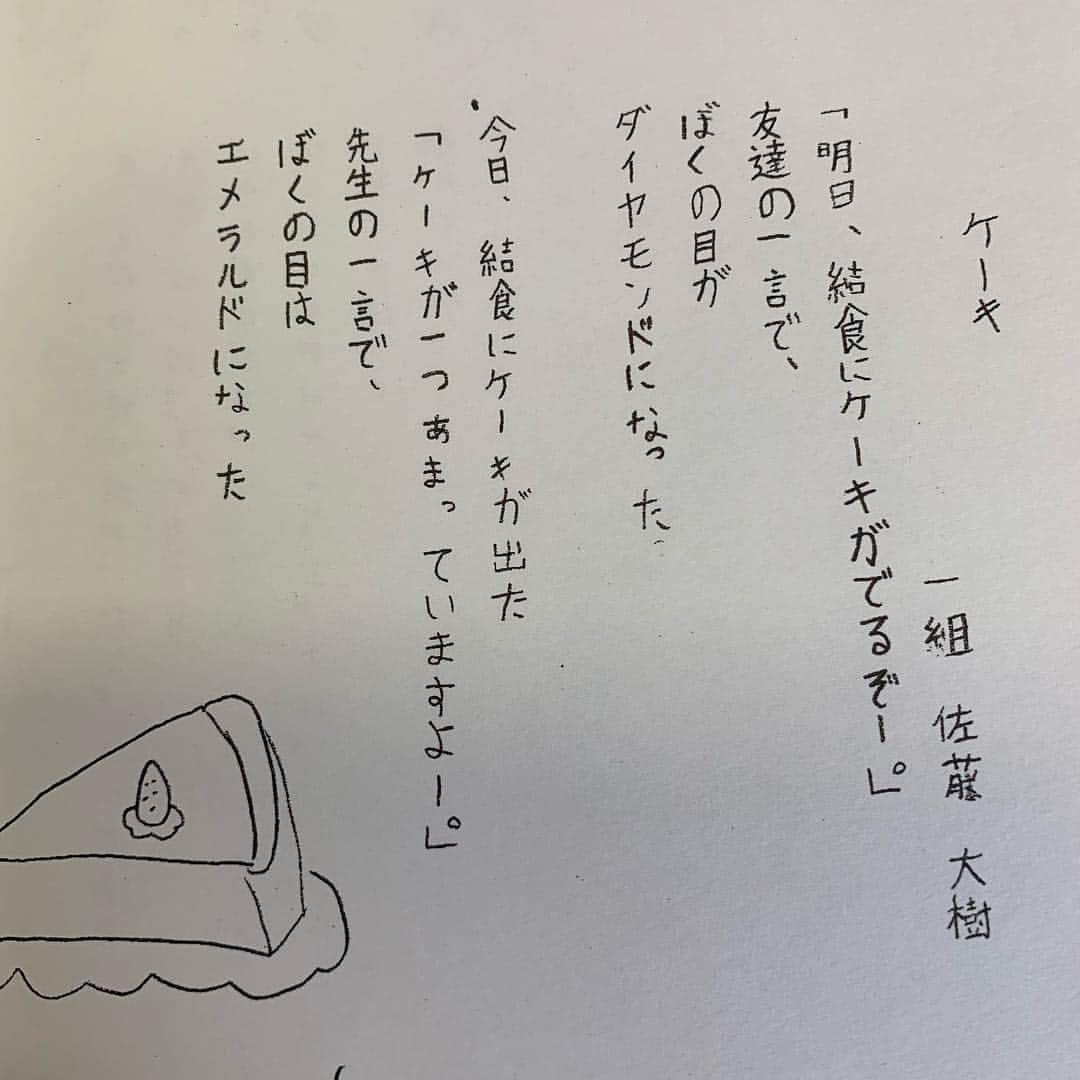 ケーキ
一組 佐藤 大樹
「明日、結食にケーキがでるぞー。」
友達の一言で、
ぼくの目が
ダイヤモンドになった
今日、結食にケーキが出た
「ケーキが一つぁまっていますよー。」
先生の一言で、
ぼくの目は
エメラルドになった